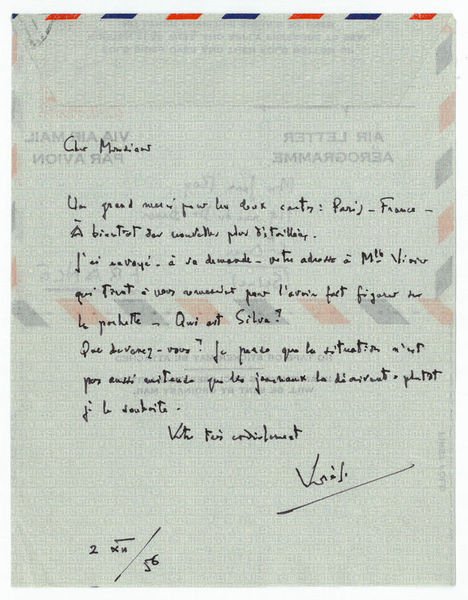 AIR LETTER
VIA AIR MAIL
AÉROGRAMME
PAR AVION
Cher Monsieur
Un grand merci pour les deux cartes : Paris – France –
À bientôt des nouvelles plus détaillées.
J'ai envoyé – à sa demande – votre adresse à Mlle Vivier
qui tenait à vous remercier pour l'avoir fait figurer sur
la pochette – Qui est Silva?
Que devenez-vous? Je pense que la situation n'est
pas aussi que les journaux la décrivent – plutôt
je le souhaite.
Votre très cordialement
Varèse
2 XII/56